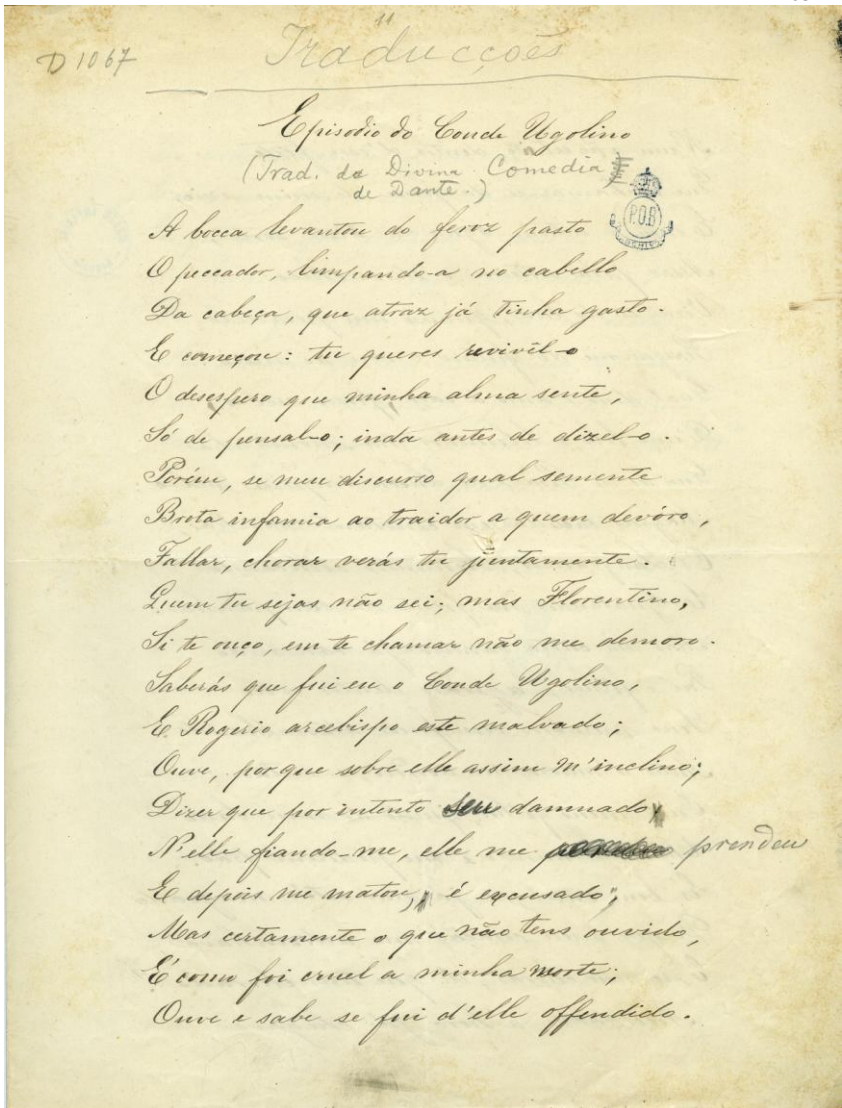 11
D 1067
Traducções
Episodio do Conde Ugolino
(Trad. da Divina Comedia
de Dante.)
P.O.B
A bocca levantou do feroz pasto
O peccador, limpando-a no cabello
Da cabeça, que atraz já tinha gasto.
E começou: tu queres revivêl-o
O desespero que minha alma sente,
Só de pensal-o; inda antes de dizel-o.
Porém, se meu discurso qual semente
Brota infamia ao traidor a quem devóro,
Fallar, chorar verás tu juntamente.
Quem tu sejas não sei; mas Florentino,
Si te ouço, em te chamar não me demoro.
Saberás que fui eu o Conde Ugolino,
E Rogerio arcebispo este malvado;
Ouve, por que sobre elle assim m'inclino;
Dizer que por intento seu damnado
N'elle fiando-me, elle me prendeu
E depois me matou, é excusado;
Mas certamente o que não tens ouvido,
É como foi cruel a minha morte;
Ouve e sabe se fui d'elle offendido.